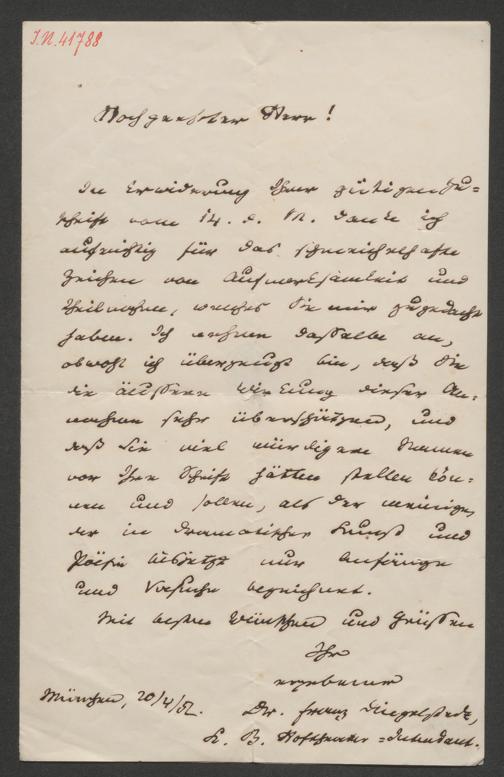 I.N. 41788
Hochgeehrter Herr!
In Erwiderung Ihrer gütigen Zu=
schrift vom 14. d. M. danke ich
aufrichtig für das schmeichelhafte
Zeichen von Aufmerksamkeit und
Theilnahme, welches Sie mir zugedacht
haben. Ich nehme dasselbe an,
obwohl ich überzeugt bin, daß Sie
die äussere Wirkung dieser An=
nahme sehr überschätzen, und
daß Sie viel würdigere Namen
vor Ihre Schrift hätten stellen kön=
nen und sollen, als der meinige,
der in dramatischer Kunst und
Poësie bis jetzt nur Anfänge
und Versuche bezeichnet.
Mit besten Wünschen und Grüssen
Ihr
ergebener
München, 20/4/52.
Dr. Franz Dingelstedt,
K. B. Hoftheater=Intendant.